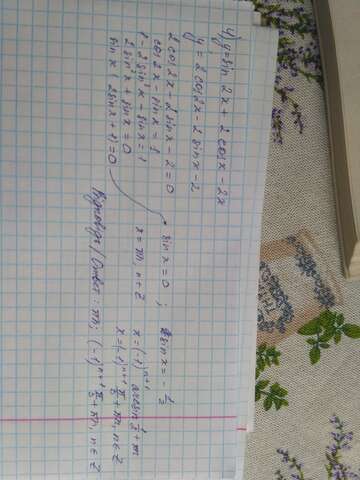 4) y = sin 2x + 2 cos x - 2x
y = 2 cos 2x - 2 sin x - 2
2 cos 2x - 2 sin x - 2 = 0
cos 2x - sin x = 1
1 - 2 sin² x - sin x = 1
2 sin² x + sin x = 0
sin x (2 sin x + 1) = 0
sin x = 0 ; sin x = - 1/2
x = πn, n ∈ Z x = (-1)ⁿ⁺¹ arcsin 1/2 + πn
x = (-1)ⁿ⁺¹ π/6 + πn, n ∈ Z
Ответ: πn; (-1)ⁿ⁺¹ π/6 + πn, n ∈ Z